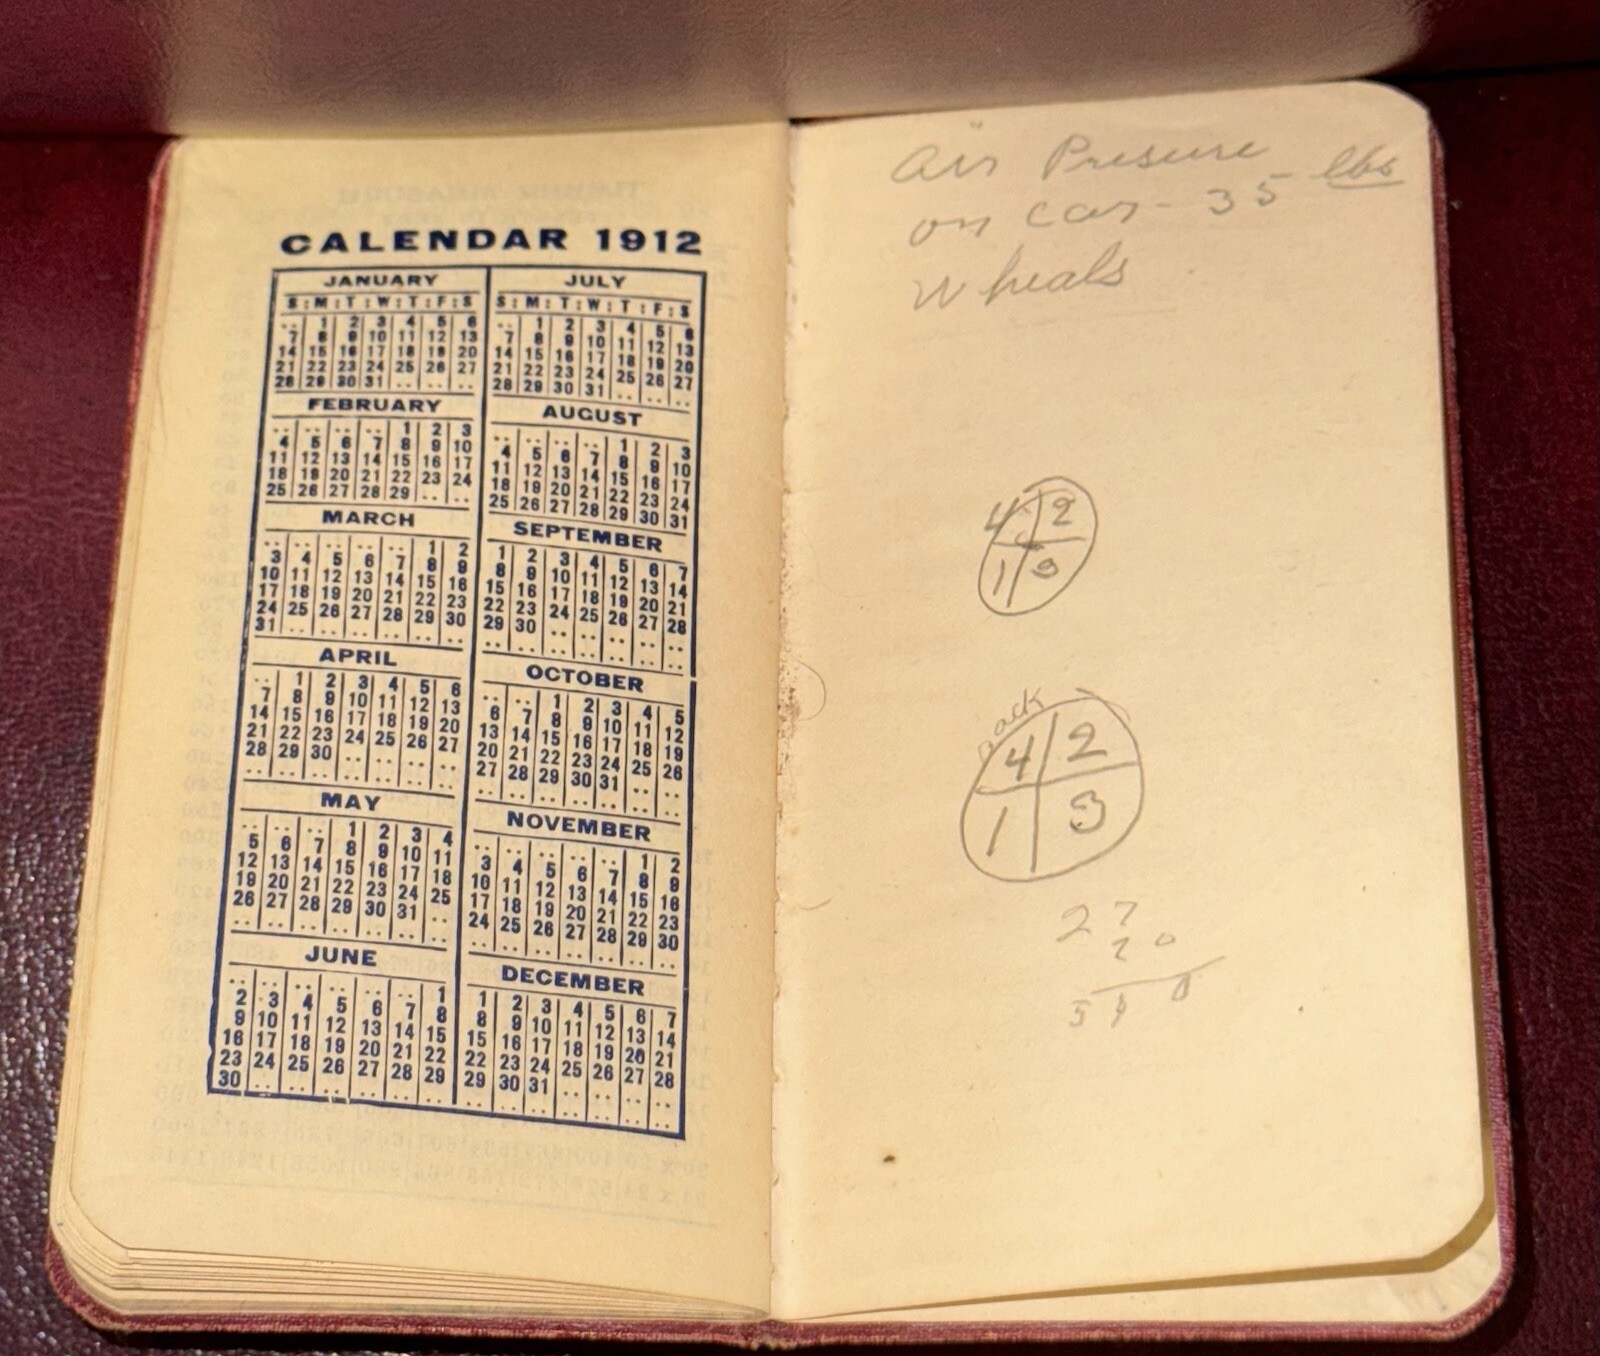 CALENDAR 1912
JANUARY
S : M : T : W : T : F : S
1 2 3 4 5 6
7 8 9 10 11 12 13
14 15 16 17 18 19 20
21 22 23 24 25 26 27
28 29 30 31
FEBRUARY
1 2 3
4 5 6 7 8 9 10
11 12 13 14 15 16 17
18 19 20 21 22 23 24
25 26 27 28 29
MARCH
1 2
3 4 5 6 7 8 9
10 11 12 13 14 15 16
17 18 19 20 21 22 23
24 25 26 27 28 29 30
31
APRIL
1 2 3 4 5 6
7 8 9 10 11 12 13
14 15 16 17 18 19 20
21 22 23 24 25 26 27
28 29 30
MAY
1 2 3 4
5 6 7 8 9 10 11
12 13 14 15 16 17 18
19 20 21 22 23 24 25
26 27 28 29 30 31
JUNE
1
2 3 4 5 6 7 8
9 10 11 12 13 14 15
16 17 18 19 20 21 22
23 24 25 26 27 28 29
30
JULY
S : M : T : W : T : F : S
1 2 3 4 5 6
7 8 9 10 11 12 13
14 15 16 17 18 19 20
21 22 23 24 25 26 27
28 29 30 31
AUGUST
1 2 3
4 5 6 7 8 9 10
11 12 13 14 15 16 17
18 19 20 21 22 23 24
25 26 27 28 29 30 31
SEPTEMBER
1 2 3 4 5 6 7
8 9 10 11 12 13 14
15 16 17 18 19 20 21
22 23 24 25 26 27 28
29 30
OCTOBER
1 2 3 4 5
6 7 8 9 10 11 12
13 14 15 16 17 18 19
20 21 22 23 24 25 26
27 28 29 30 31
NOVEMBER
1 2
3 4 5 6 7 8 9
10 11 12 13 14 15 16
17 18 19 20 21 22 23
24 25 26 27 28 29 30
DECEMBER
1 2 3 4 5 6 7
8 9 10 11 12 13 14
15 16 17 18 19 20 21
22 23 24 25 26 27 28
29 30 31
Air Presure
on car - 35 lbs
Wheals
4 2
1 3
4 2
1 3
27
20
540